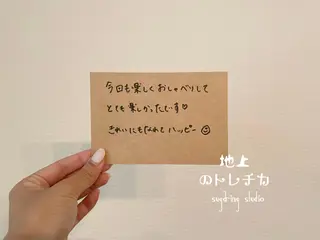 今回も楽しくおしゃべりして
とても楽しかったです♡
きれいにもなれて ハッピー☺
地上
のトレチカ